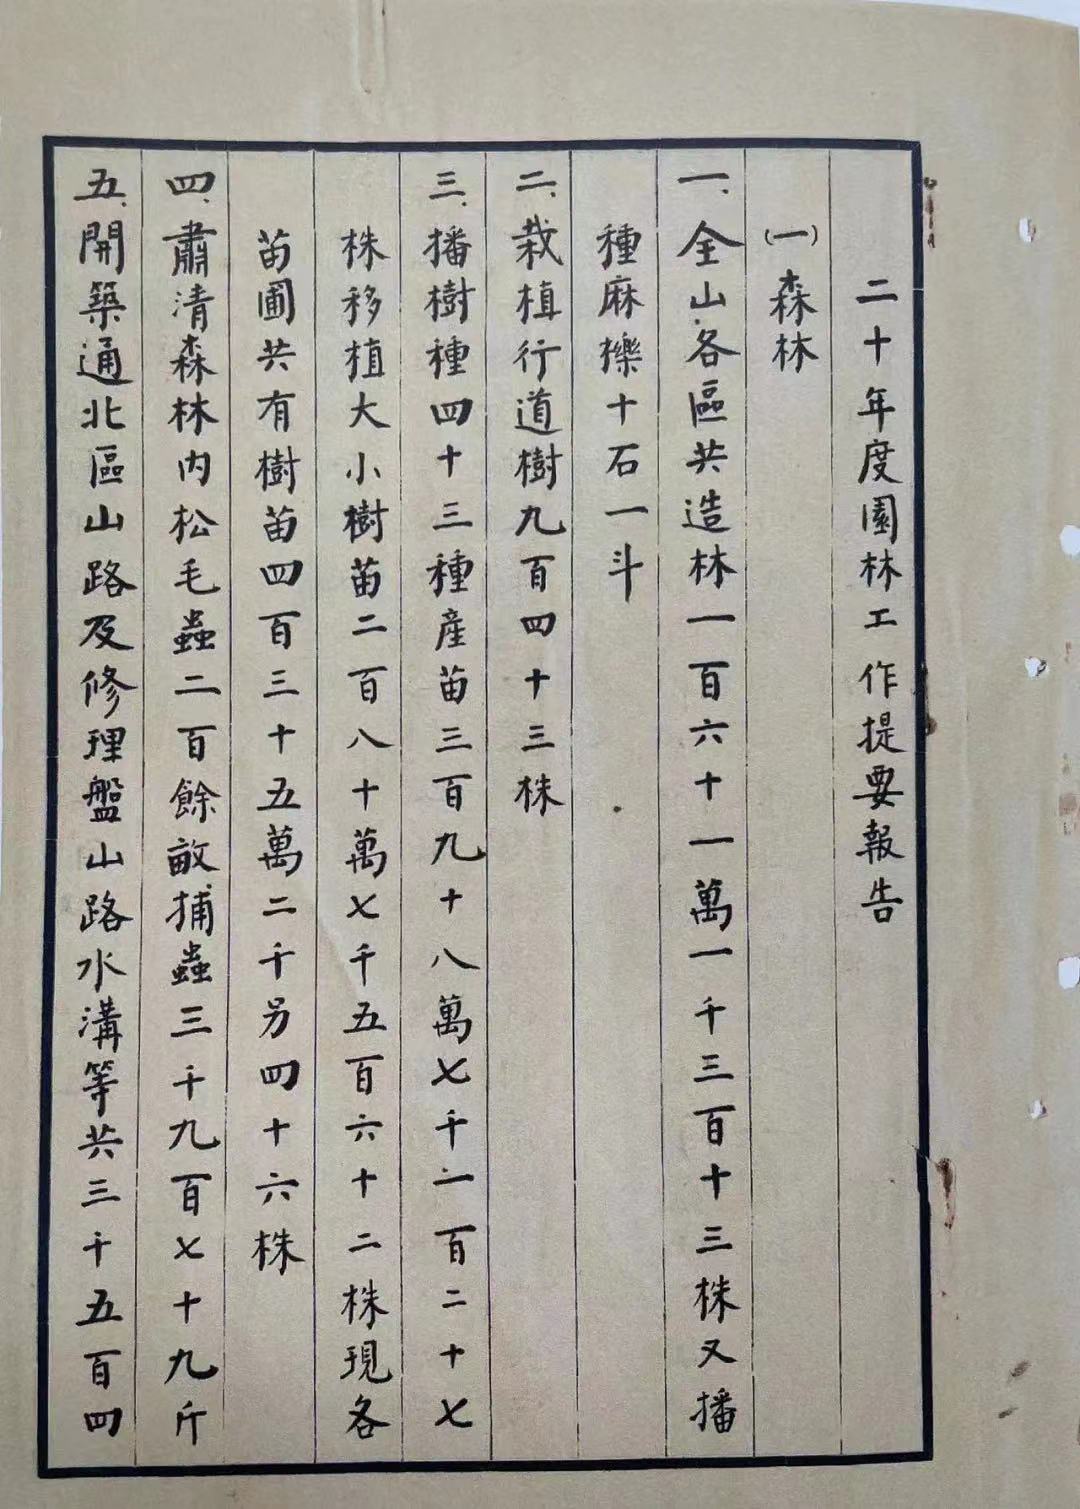 二十年度園林工作提要報告
(一)森林
一、全山各區共造林一百六十一萬一千三百十三株又播
種麻擽十石一斗
二、栽植行道樹九百四十三株
三、播樹種四十三種産苗三百九十八萬七千一百二十七
株移植大小樹苗二百八十萬七千五百六十二株現各
苗圃共有樹苗四百三十五萬二千另四十六株
四、肅清森林内松毛蟲二百餘畝捕蟲三千九百七十九斤
五、開築通北區山路及修理盤山路水溝等共三千五百四